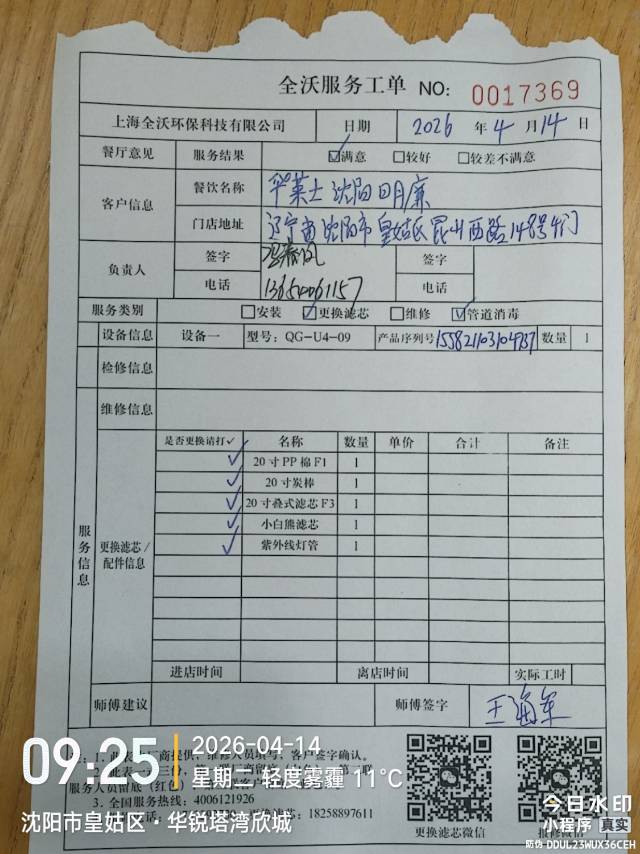 全沃服务工单 NO: 0017369
上海全沃环保科技有限公司 日期 2026 年 4 月 14 日
餐厅意见 服务结果 ☑满意 □较好 □较差不满意
客户信息 餐饮名称 华莱士 沈阳明廉
门店地址 辽宁省沈阳市皇姑区昆山西路148号4门
负责人 签字 签字
电话 13654061157 电话
服务类别 □安装 ☑更换滤芯 □维修 ☑管道消毒
设备信息 设备一 型号: QG-U4-09 产品序列号 155821103104737 数量 1
检修信息
维修信息
服务信息
更换滤芯/配件信息
是否更换请打✓ 名称 数量 单价 合计 备注
✓ 20寸PP棉F1 1
✓ 20寸炭棒 1
✓ 20寸叠式滤芯F3 1
✓ 小白熊滤芯 1
✓ 紫外线灯管 1
进店时间 离店时间 实际工时
师傅建议 师傅签字 王海军
客户签字确认。
服务人员留底(红色)
3. 全国服务热线: 4006121926
18258897611
更换滤芯微信 报修微信
09:25
2026-04-14
星期二 轻度雾霾 11℃
沈阳市皇姑区·华锐塔湾欣城
今日水印
小程序 真实
防伪 DDUL23WUX36CEH